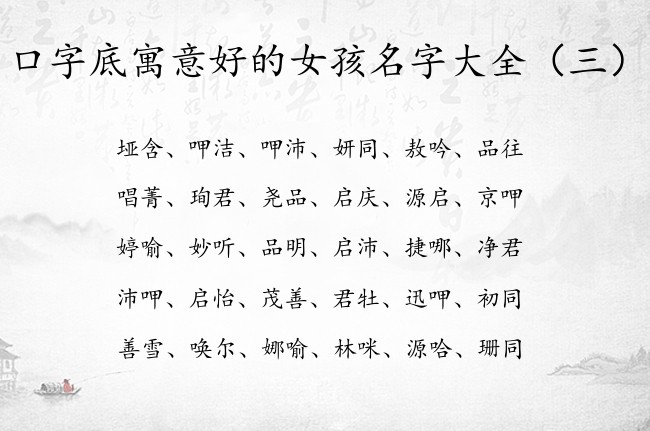 口字底寓意好的女孩名字大全（三）
垭含、呷洁、呷沛、妍同、敖吟、品往
唱菁、珣君、尧品、启庆、源启、京呷
婷喻、妙听、品明、启沛、捷哪、净君
沛呷、启怡、茂善、君牡、迅呷、初同
善雪、唤尔、娜喻、林咪、源哈、珊同